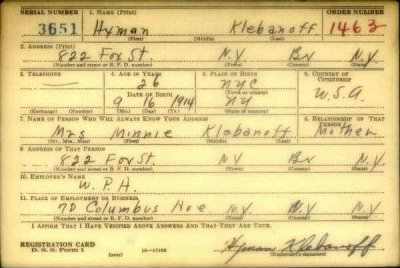 SERIAL NUMBER 1. NAME (Print) ORDER NUMBER
3651 Hyman Klebanoff 1463
(First) (Middle) (Last)
2. ADDRESS (Print)
822 Fox St. N.Y Bx N.Y
(Number and street or R. F. D. number) (Town) (County) (State)
3. TELEPHONE 4. AGE IN YEARS 5. PLACE OF BIRTH 6. COUNTRY OF CITIZENSHIP
26 NYC
DATE OF BIRTH (Town or county)
9 16 1914 NY U.S.A
(Exchange) (Number) (Mo.) (Day) (Yr.) (State or country)
7. NAME OF PERSON WHO WILL ALWAYS KNOW YOUR ADDRESS 8. RELATIONSHIP OF THAT PERSON
Mrs Minnie Klebanoff Mother
(Mr., Mrs., Miss) (First) (Middle) (Last)
9. ADDRESS OF THAT PERSON
822 Fox St. N.Y Bx N.Y
(Number and street or R. F. D. number) (Town) (County) (State)
10. EMPLOYER'S NAME
W.P.A.
11. PLACE OF EMPLOYMENT OR BUSINESS
70 Columbus Ave N.Y Bx N.Y
(Number and street or R. F. D. number) (Town) (County) (State)
I AFFIRM THAT I HAVE VERIFIED ABOVE ANSWERS AND THAT THEY ARE TRUE.
REGISTRATION CARD
D. S. S. Form 1 (over) Hyman Klebanoff
(Registrant's signature)